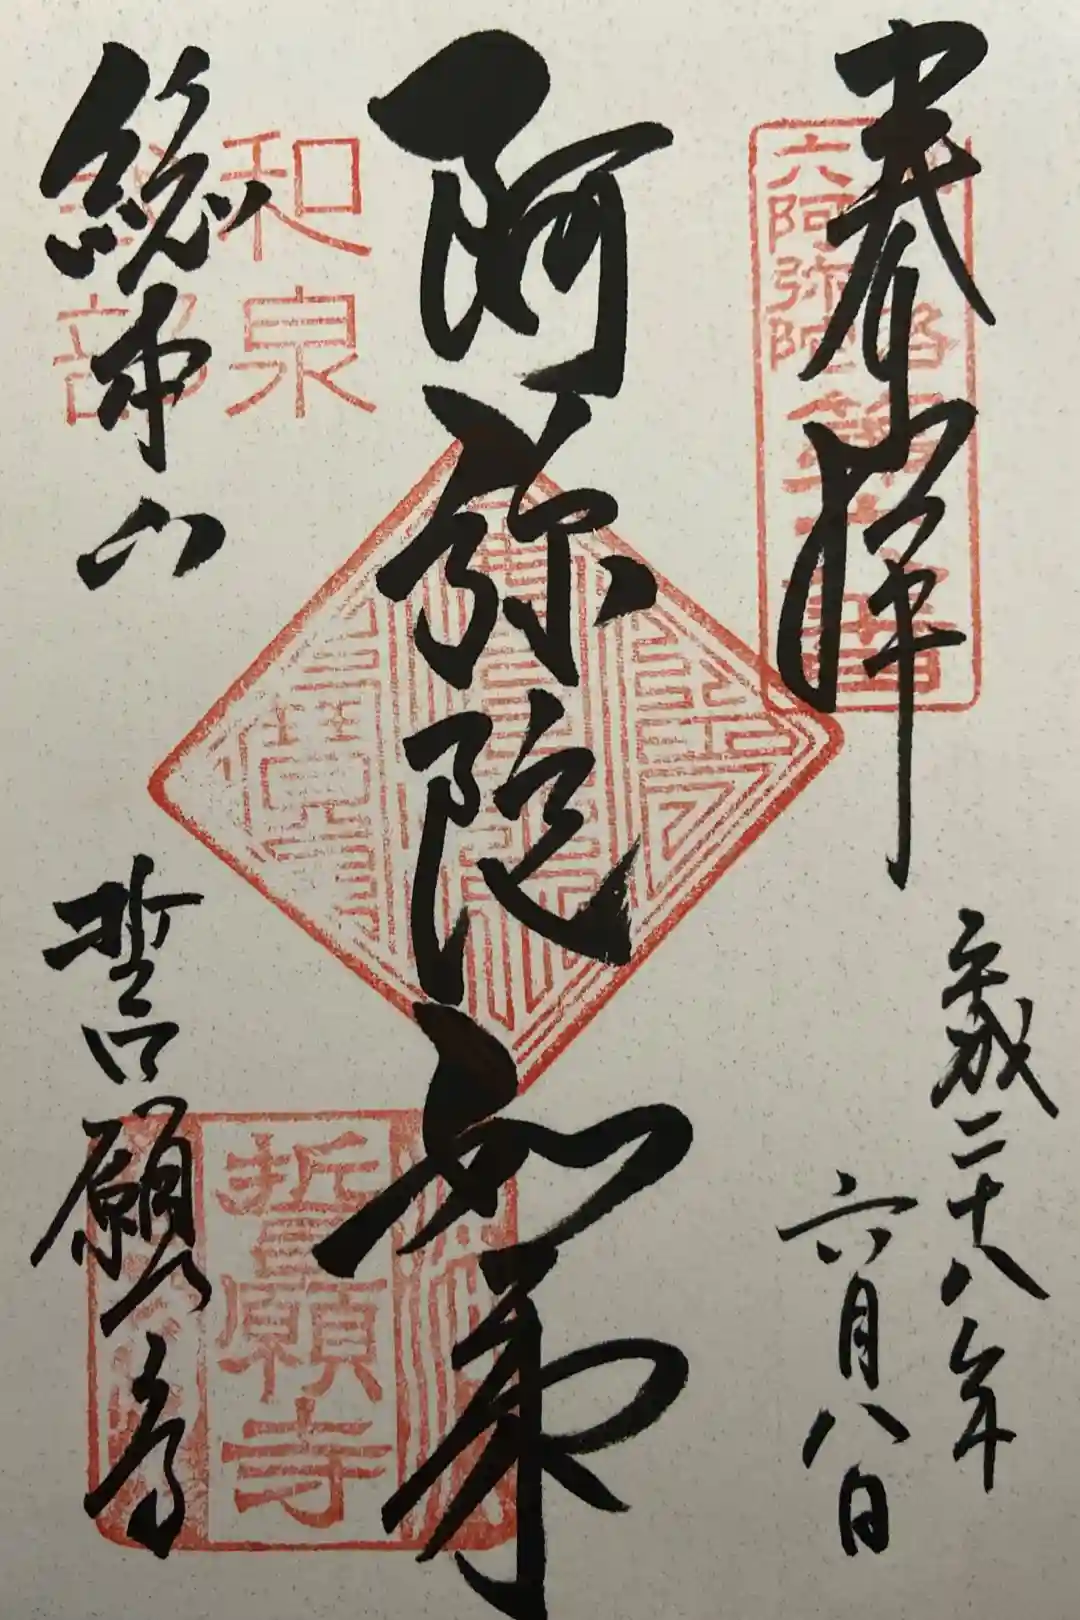 奉拝
平成二十八年
六月八日
阿弥陀如来
総本山
誓願寺
六阿弥陀
和泉
誓願寺